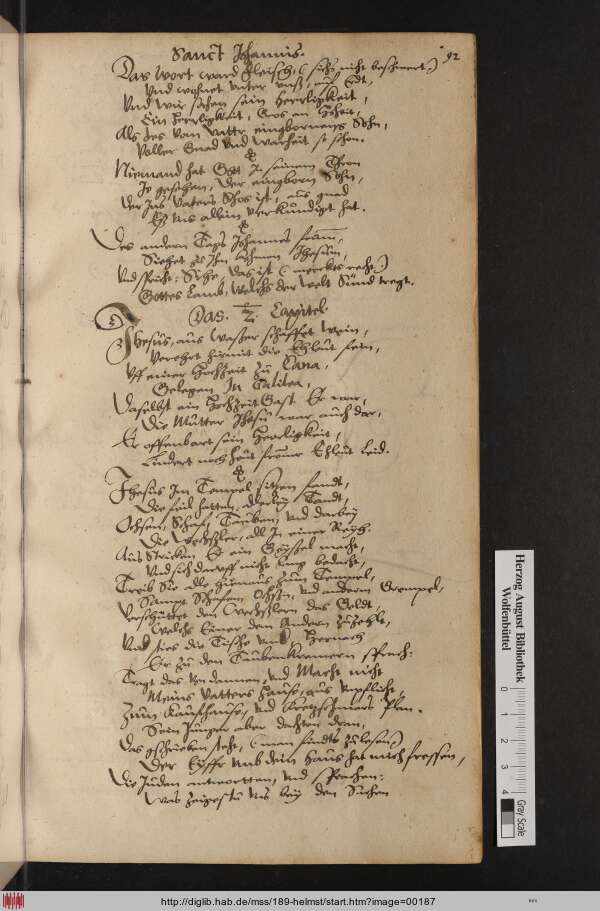 Sanct Johannis.
92
Das wort ward Fleisch, (sichs nicht beschwert)
Vnd wohnet vnter vnß, auf Erdt,
Vnd wir sahen sein Herrligkeit,
Ein Herrligkeit, Gros an
Als des vom Vatter eingebornens Sohn,
Voller Gnad vnd Warheit so schon.
Niemand hat Gott In seinem Thron
Je gesehen, der eingborn Sohn,
Der Ins Vaters Schos ist, aus gnad
Es vns allein verkundigt hat.
Des andern Tags Johannes
Siehet zu Ihm kohmen Jhesum,
Vnd spricht: Sihe, das ist (merckts recht)
Gottes Lamb, welchs der Welt Sünd tregt.
Das. 2. Capittel.
Jhesus, aus Wasser schaffet Wein,
Verehrt hiemit die Ehleut fein,
Vff einer Hochheit zu Cana,
Gelegen In Galilea,
Daselbst ein HochzeitGast Er war,
Die Mutter Jhesu war auch dar,
Er offenbart sein Herrligkeit,
Lindert noch heut fromer Ehleut leid.
Jhesus Im Tempel sitzen fandt,
Die feil hetten, allerley Tandt,
Ochsen, Schaf, Tauben, vnd darbey
Die Wechsler, all In einer Reyh.
Aus Stricken Er ein Geyssel macht,
Vnd sich darauff nicht lang bedacht,
Treib Sie alle hinaus zum Tempel,
Sampt Schafen Ochsen, vnd anderm Grempel,
Verschüttet den Wechslern das Geldt,
Welchs Einer dem Andern zuzehlt,
Vnd sties die Tische vmb, Hernach
Er zu den Taubenkramern sprach:
Tragt das von dannen, vnd Macht nicht
Meins Vatters Hause, aus vnpflicht,
Zum Kaufhause, vnd Plan.
Sein Junger aber dachten dran,
Das geschrieben steht, (man findts zulesen)
Der Eyffr vmb dein Haus hat mich fressen,
Die Juden antwortten, vnd sprachen:
Was zeigestu vns bey den Sachen
Herzog August Bibliothek
Wolfenbüttel
0 1 2 3 4
Gray Scale
http://diglib.hab.de/mss/189-helmst/start.htm?image=00187